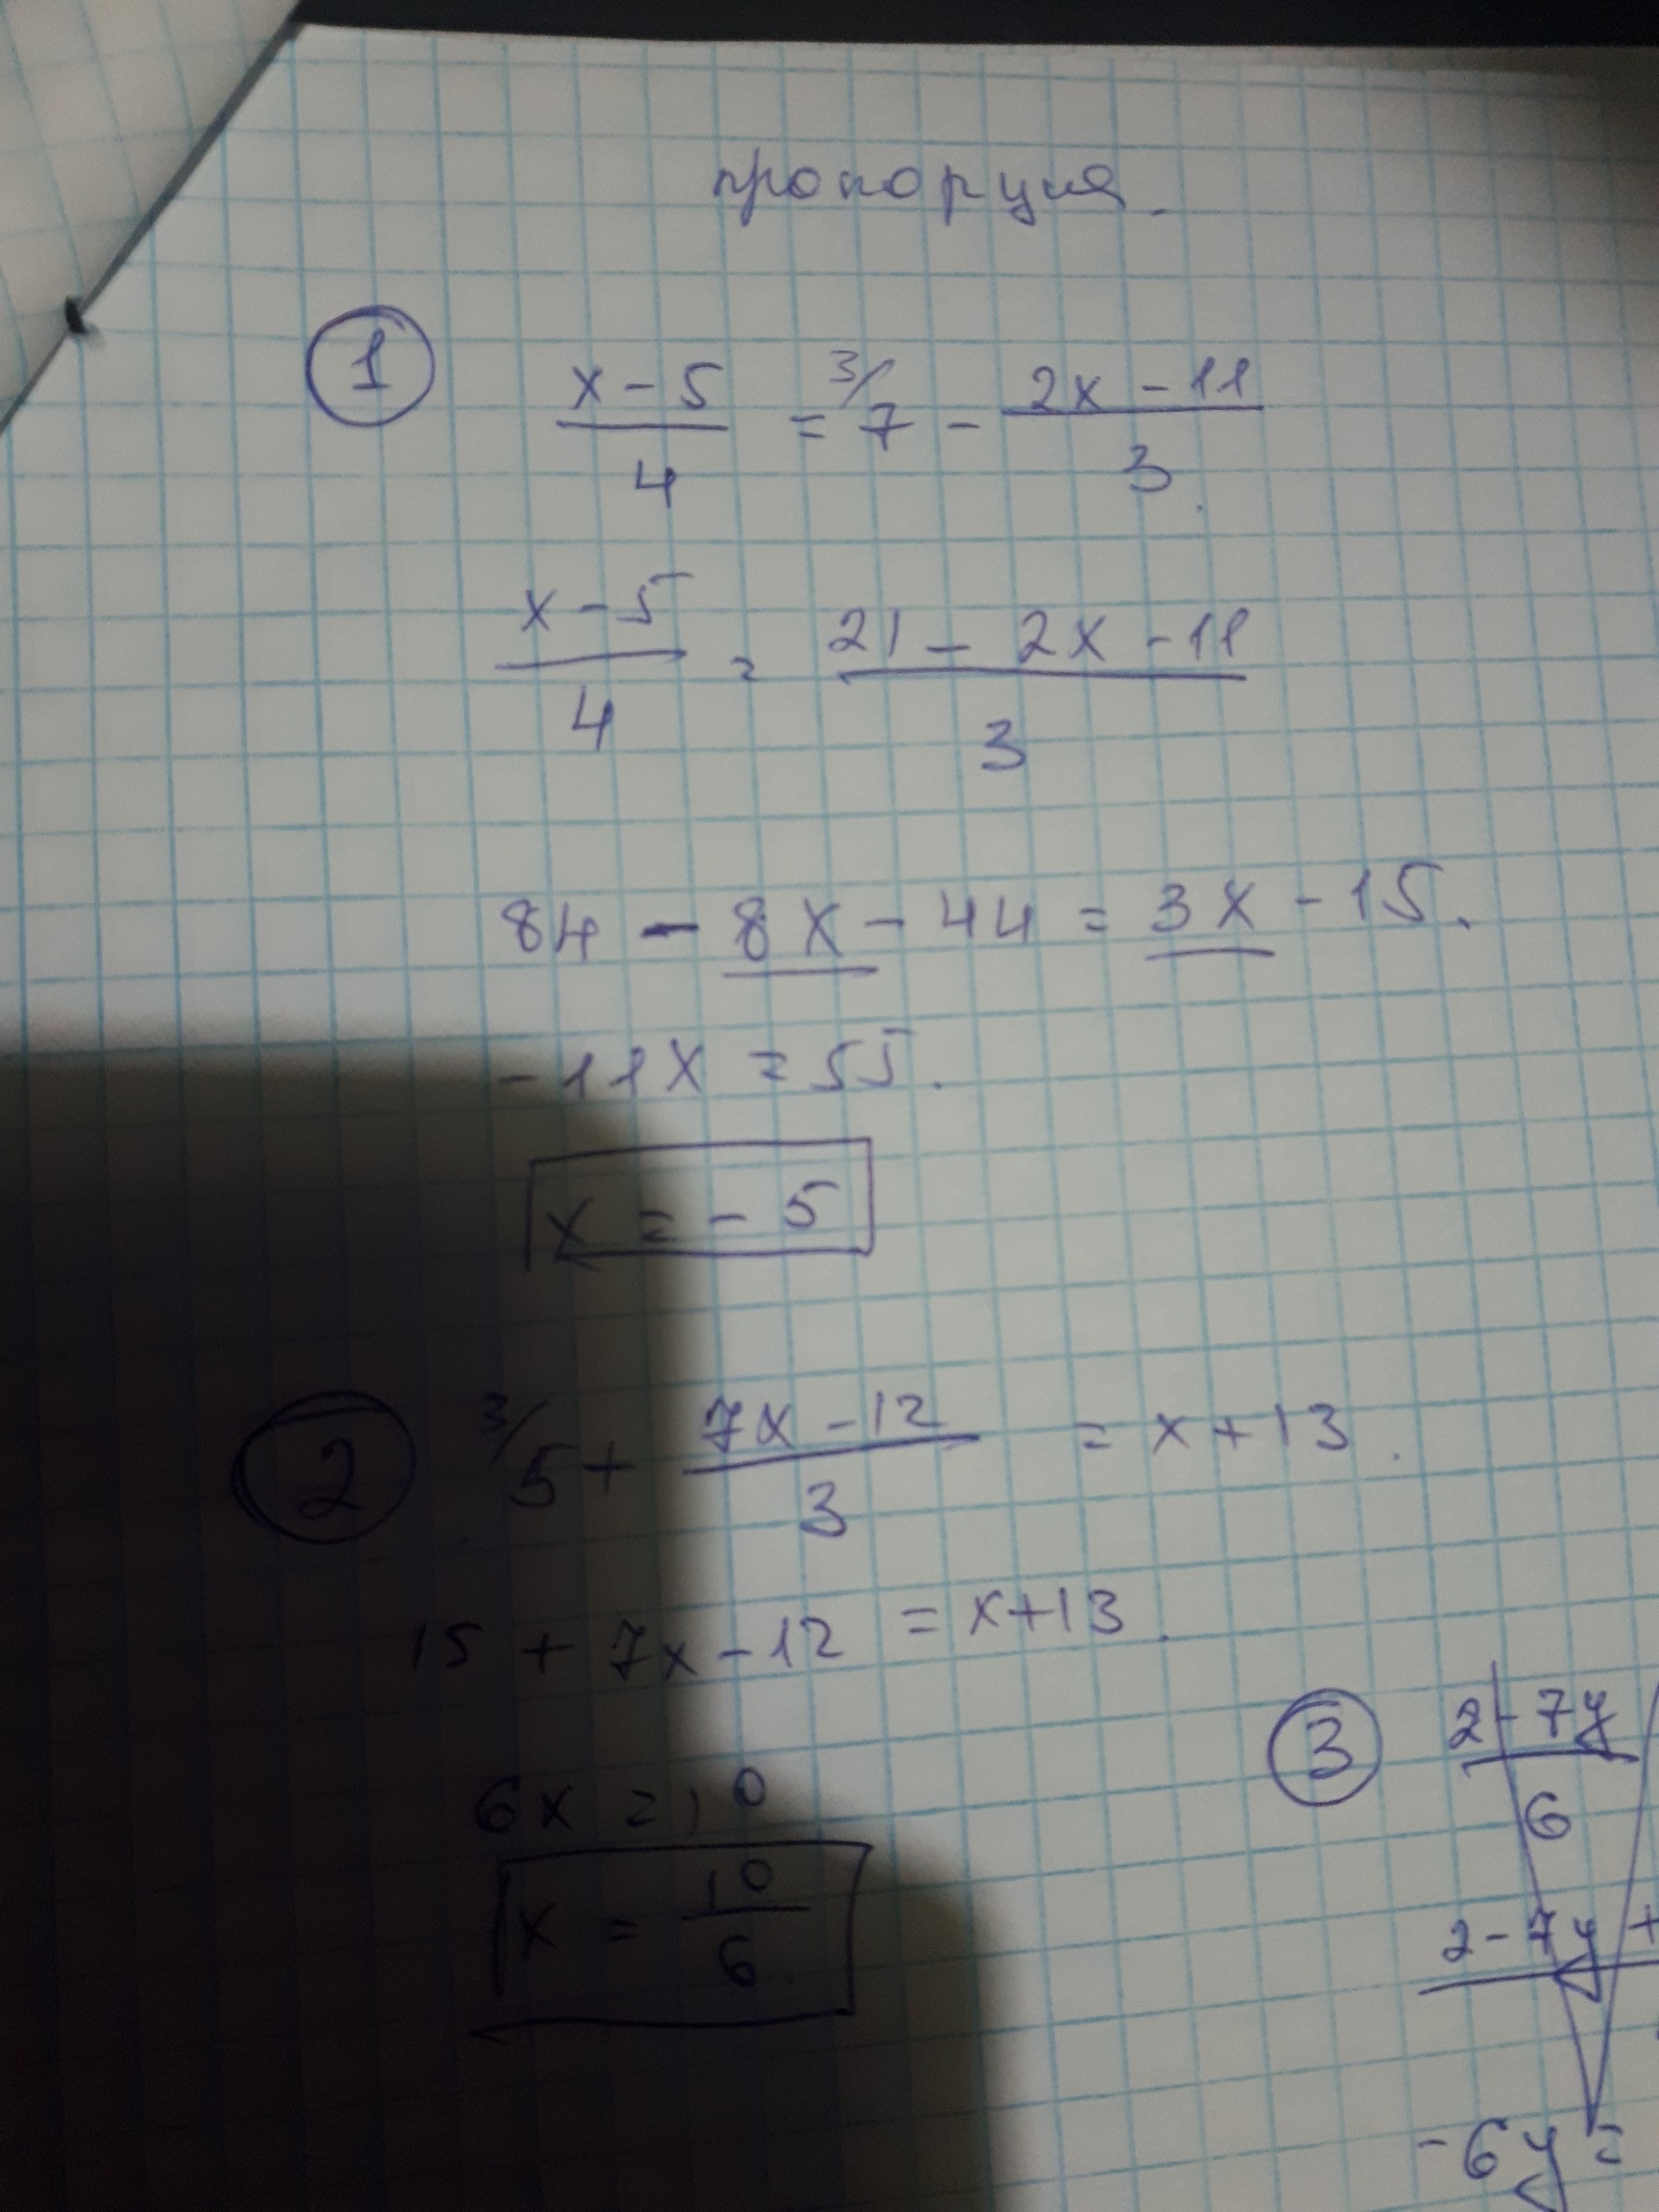 пропорция.
① (x-5)/4 = ³/7 - (2x-11)/3
(x-5)/4 = (21 - 2x - 11)/3
84 - 8x - 44 = 3x - 15.
-11x = 55.
x = -5
② ³/5 + (7x-12)/3 = x+13.
15 + 7x - 12 = x+13.
6x = 10
x = 10/6
③ (2-7y)/6
2-7y +
-6y =